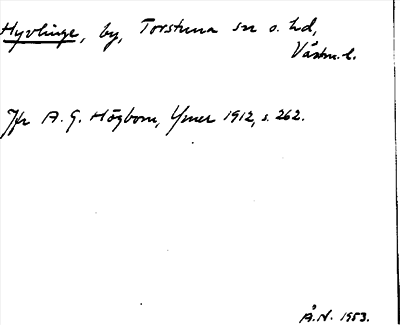 Hyvlinge, by, Torstuna sn o. hd,
Västm. l.
Jfr A. G. Högbom, Ymer 1912, s. 262.
Å.N. 1953.